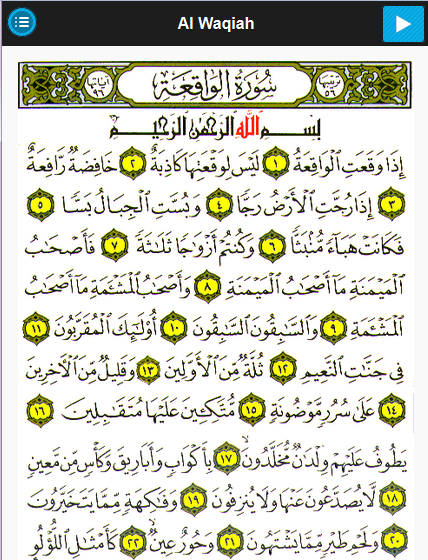 Al Waqiah
ترتيبها ٥٦ سُورَةُ الوَاقِعَة آياتها ٩٦
بِسْمِ اللَّهِ الرَّحْمَٰنِ الرَّحِيمِ
إِذَا وَقَعَتِ ٱلْوَاقِعَةُ ١ لَيْسَ لِوَقْعَتِهَا كَاذِبَةٌ ٢ خَافِضَةٌ رَّافِعَةٌ
٣ إِذَا رُجَّتِ ٱلْأَرْضُ رَجًّا ٤ وَبُسَّتِ ٱلْجِبَالُ بَسًّا ٥
فَكَانَتْ هَبَآءً مُّنۢبَثًّا ٦ وَكُنتُمْ أَزْوَٰجًا ثَلَٰثَةً ٧ فَأَصْحَٰبُ
ٱلْمَيْمَنَةِ مَآ أَصْحَٰبُ ٱلْمَيْمَنَةِ ٨ وَأَصْحَٰبُ ٱلْمَشْـَٔمَةِ مَآ أَصْحَٰبُ
ٱلْمَشْـَٔمَةِ ٩ وَٱلسَّٰبِقُونَ ٱلسَّٰبِقُونَ ١٠ أُو۟لَٰٓئِكَ ٱلْمُقَرَّبُونَ ١١
فِى جَنَّٰتِ ٱلنَّعِيمِ ١٢ ثُلَّةٌ مِّنَ ٱلْأَوَّلِينَ ١٣ وَقَلِيلٌ مِّنَ ٱلْءَاخِرِينَ
١٤ عَلَىٰ سُرُرٍ مَّوْضُونَةٍ ١٥ مُّتَّكِـِٔينَ عَلَيْهَا مُتَقَٰبِلِينَ ١٦
يَطُوفُ عَلَيْهِمْ وِلْدَٰنٌ مُّخَلَّدُونَ ١٧ بِأَكْوَابٍ وَأَبَارِيقَ وَكَأْسٍ مِّن مَّعِينٍ
١٨ لَّا يُصَدَّعُونَ عَنْهَا وَلَا يُنزِفُونَ ١٩ وَفَٰكِهَةٍ مِّمَّا يَتَخَيَّرُونَ
٢٠ وَلَحْمِ طَيْرٍ مِّمَّا يَشْتَهُونَ ٢١ وَحُورٌ عِينٌ ٢٢ كَأَمْثَٰلِ ٱللُّؤْلُؤِ